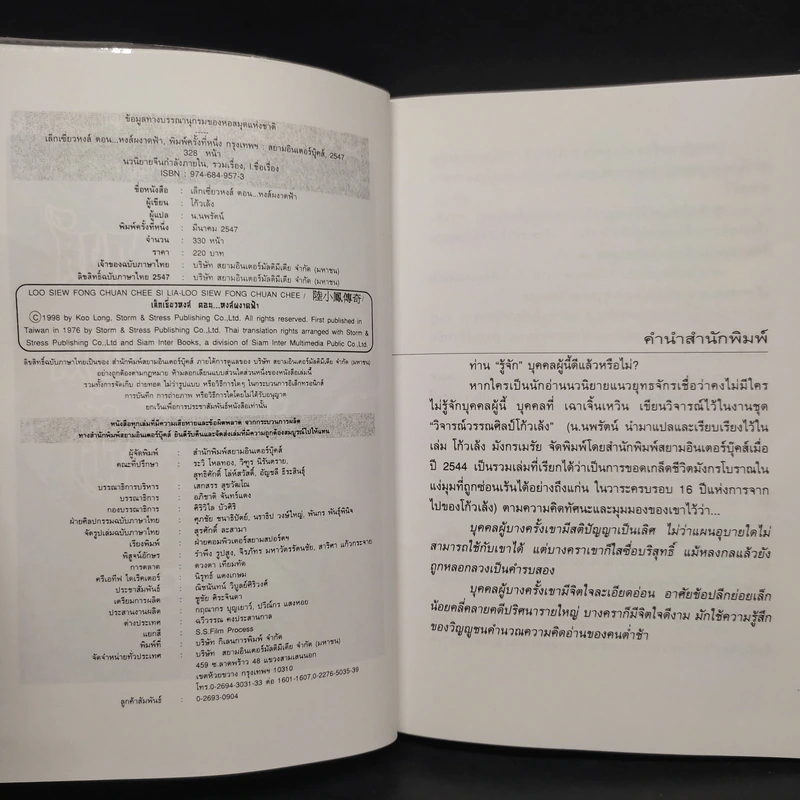 ข้อมูลทางบรรณานุกรมของหอสมุดแห่งชาติ
เล็กเซี่ยวหงส์ ตอน...หงส์ผงาดฟ้า, พิมพ์ครั้งที่หนึ่ง กรุงเทพฯ : สยามอินเตอร์บุ๊คส์, 2547
328 หน้า
นวนิยายจีนกำลังภายใน, รวมเรื่อง, I.ชื่อเรื่อง
ISBN : 974-684-957-3
ชื่อหนังสือ : เล็กเซี่ยวหงส์ ตอน...หงส์ผงาดฟ้า
ผู้เขียน : โก้วเล้ง
ผู้แปล : น.นพรัตน์
พิมพ์ครั้งที่หนึ่ง : มีนาคม 2547
จำนวน : 330 หน้า
ราคา : 220 บาท
เจ้าของฉบับภาษาไทย : บริษัท สยามอินเตอร์มัลติมีเดีย จำกัด (มหาชน)
ลิขสิทธิ์ฉบับภาษาไทย 2547 : บริษัท สยามอินเตอร์มัลติมีเดีย จำกัด (มหาชน)
LOO SIEW FONG CHUAN CHEE SI LIA-LOO SIEW FONG CHUAN CHEE / 陸小鳳傳奇/
เล็กเซี่ยวหงส์ ตอน...หงส์ผงาดฟ้า
©1998 by Koo Long, Storm & Stress Publishing Co.,Ltd. All rights reserved. First published in
Taiwan in 1976 by Storm & Stress Publishing Co.,Ltd. Thai translation rights arranged with Storm &
Stress Publishing Co.,Ltd and Siam Inter Books, a division of Siam Inter Multimedia Public Co.,Ltd.
ลิขสิทธิ์ฉบับภาษาไทยเป็นของ สำนักพิมพ์สยามอินเตอร์บุ๊คส์ ภายใต้การดูแลของ บริษัท สยามอินเตอร์มัลติมีเดีย จำกัด (มหาชน)
อย่างถูกต้องตามกฎหมาย ห้ามลอกเลียนแบบส่วนใดส่วนหนึ่งของหนังสือเล่มนี้
รวมทั้งการจัดเก็บ ถ่ายทอด ไม่ว่ารูปแบบ หรือวิธีการใดๆ ในกระบวนการอิเล็กทรอนิกส์
การบันทึก การถ่ายภาพ หรือวิธีการใดโดยไม่ได้รับอนุญาต
ยกเว้นเพื่อการประชาสัมพันธ์หนังสือเล่มนี้เท่านั้น
หนังสือทุกเล่มที่มีความเสียหายและข้อผิดพลาด จากกระบวนการผลิต
ทางสำนักพิมพ์สยามอินเตอร์บุ๊คส์ ยินดีรับคืนและจัดส่งเล่มที่มีความถูกต้องสมบูรณ์ไปให้แทน
ผู้จัดพิมพ์ : สำนักพิมพ์สยามอินเตอร์บุ๊คส์
คณะที่ปรึกษา : ระวิ โหลทอง, วิฑูร นิรันตราย,
สุทธิศักดิ์ โล่ห์สวัสดิ์, อัญชลี ธีระสินธุ์
บรรณาธิการบริหาร : เสกสรร สุขวัฒโณ
บรรณาธิการ : อภิชาติ จันทร์แดง
กองบรรณาธิการ : ศิริวิไล บัวศิริ
ฝ่ายศิลปกรรมฉบับภาษาไทย : ศุภชัย ชนาธิปัตย์, นราธิป วงษ์ใหญ่, พันกร พันธุ์พินิจ
จัดรูปเล่มฉบับภาษาไทย : สุรศักดิ์ ละสามา
เรียงพิมพ์ : ฝ่ายคอมพิวเตอร์สยามสปอร์ตฯ
พิสูจน์อักษร : รำพึง รูปสูง, จิรภัทร มหาวัตรรัตนชัย, สาริศา แก้วกระจาย
การตลาด : ดวงตา เทียมทัด
ครีเอทีฟ ไดเร็คเตอร์ : นิรุทธ์ แดงเกษม
ประชาสัมพันธ์ : ณิชนันทน์ วิบูลย์ศิริวงศ์
เตรียมการผลิต : ชูชัย ศิระจินดา
ประสานงานผลิต : กฤณากร บุญเยาว์, ปวีณ์กร แสงหอย
ต่างประเทศ : ฉวีวรรณ คงประสานกาล
แยกสี : S.S.Film Process
พิมพ์ที่ : บริษัท กิเลนการพิมพ์ จำกัด
จัดจำหน่ายทั่วประเทศ : บริษัท สยามอินเตอร์มัลติมีเดีย จำกัด (มหาชน)
459 ซ.ลาดพร้าว 48 แขวงสามเสนนอก
เขตห้วยขวาง กรุงเทพฯ 10310
โทร.0-2694-3031-33 ต่อ 1601-1607,0-2276-5035-39
ลูกค้าสัมพันธ์ : 0-2693-0904
คำนำสำนักพิมพ์
ท่าน “รู้จัก” บุคคลผู้นี้ดีแล้วหรือไม่?
หากใครเป็นนักอ่านนวนิยายแนวยุทธจักรเชื่อว่าคงไม่มีใคร
ไม่รู้จักบุคคลผู้นี้ บุคคลที่ เฉาเจิ้นเหวิน เขียนวิจารณ์ไว้ในงานชุด
“วิจารณ์วรรณศิลป์โก้วเล้ง” (น.นพรัตน์ นำมาแปลและเรียบเรียงไว้ใน
เล่ม โก้วเล้ง มังกรเมรัย จัดพิมพ์โดยสำนักพิมพ์สยามอินเตอร์บุ๊คส์เมื่อ
ปี 2544 เป็นรวมเล่มที่เรียกได้ว่าเป็นการขอดเกล็ดชีวิตมังกรโบราณใน
แง่มุมที่ถูกซ่อนเร้นได้อย่างถึงแก่น ในวาระครบรอบ 16 ปีแห่งการจาก
ไปของโก้วเล้ง) ตามความคิดทัศนะและมุมมองของเขาไว้ว่า...
บุคคลผู้บางครั้งเขามีสติปัญญาเป็นเลิศ ไม่ว่าแผนอุบายใดไม่
สามารถใช้กับเขาได้ แต่บางคราเขาก็ใสซื่อบริสุทธิ์ แม้หลงกลแล้วยัง
ถูกหลอกลวงเป็นคำรบสอง
บุคคลผู้บางครั้งเขามีจิตใจละเอียดอ่อน อาศัยข้อปลีกย่อยเล็ก
น้อยคลี่คลายคดีปริศนารายใหญ่ บางคราก็มีจิตใจดีงาม มักใช้ความรู้สึก
ของวิญญูชนคำนวณความคิดอ่านของคนต่ำช้า